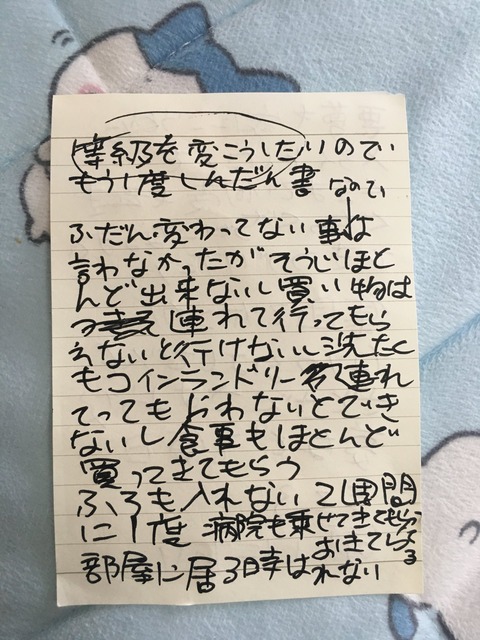 等級を変こうしたいのでい
もう1度しんだん書 なのでい
ふだん変わってない事は
言わなかったがそうじほと
んど出来ないし買い物は
連れて行ってもら
えないと行けないし洗たく
もコインランドリー 連れ
てってもらわないとでき
ないし食事もほとんど
買ってきてもらう
ふろも入れない 2週間
に1度 病院も乗せてきてもらってる
部屋に居る時は おきてられない